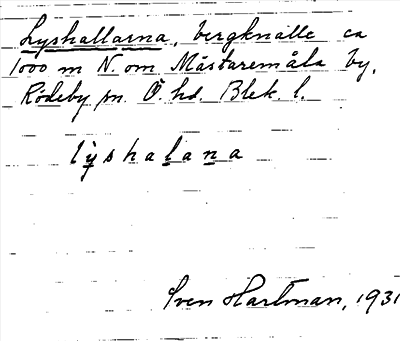 Lyshallarna, bergknalle ca
1000 m N. om Mästaremåla by,
Rödeby sn. Ö. hd. Blek. l.
lẏshalana
Sven Hartman, 1931